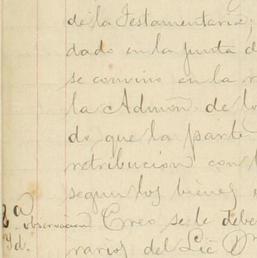 de la Testamentaria,
dado en la junta d
se convino en la r
la Admón de lo
do que la parte
retribucion con l
segun los bienes
2a
observacion Creo se le debe
rarios del Lic